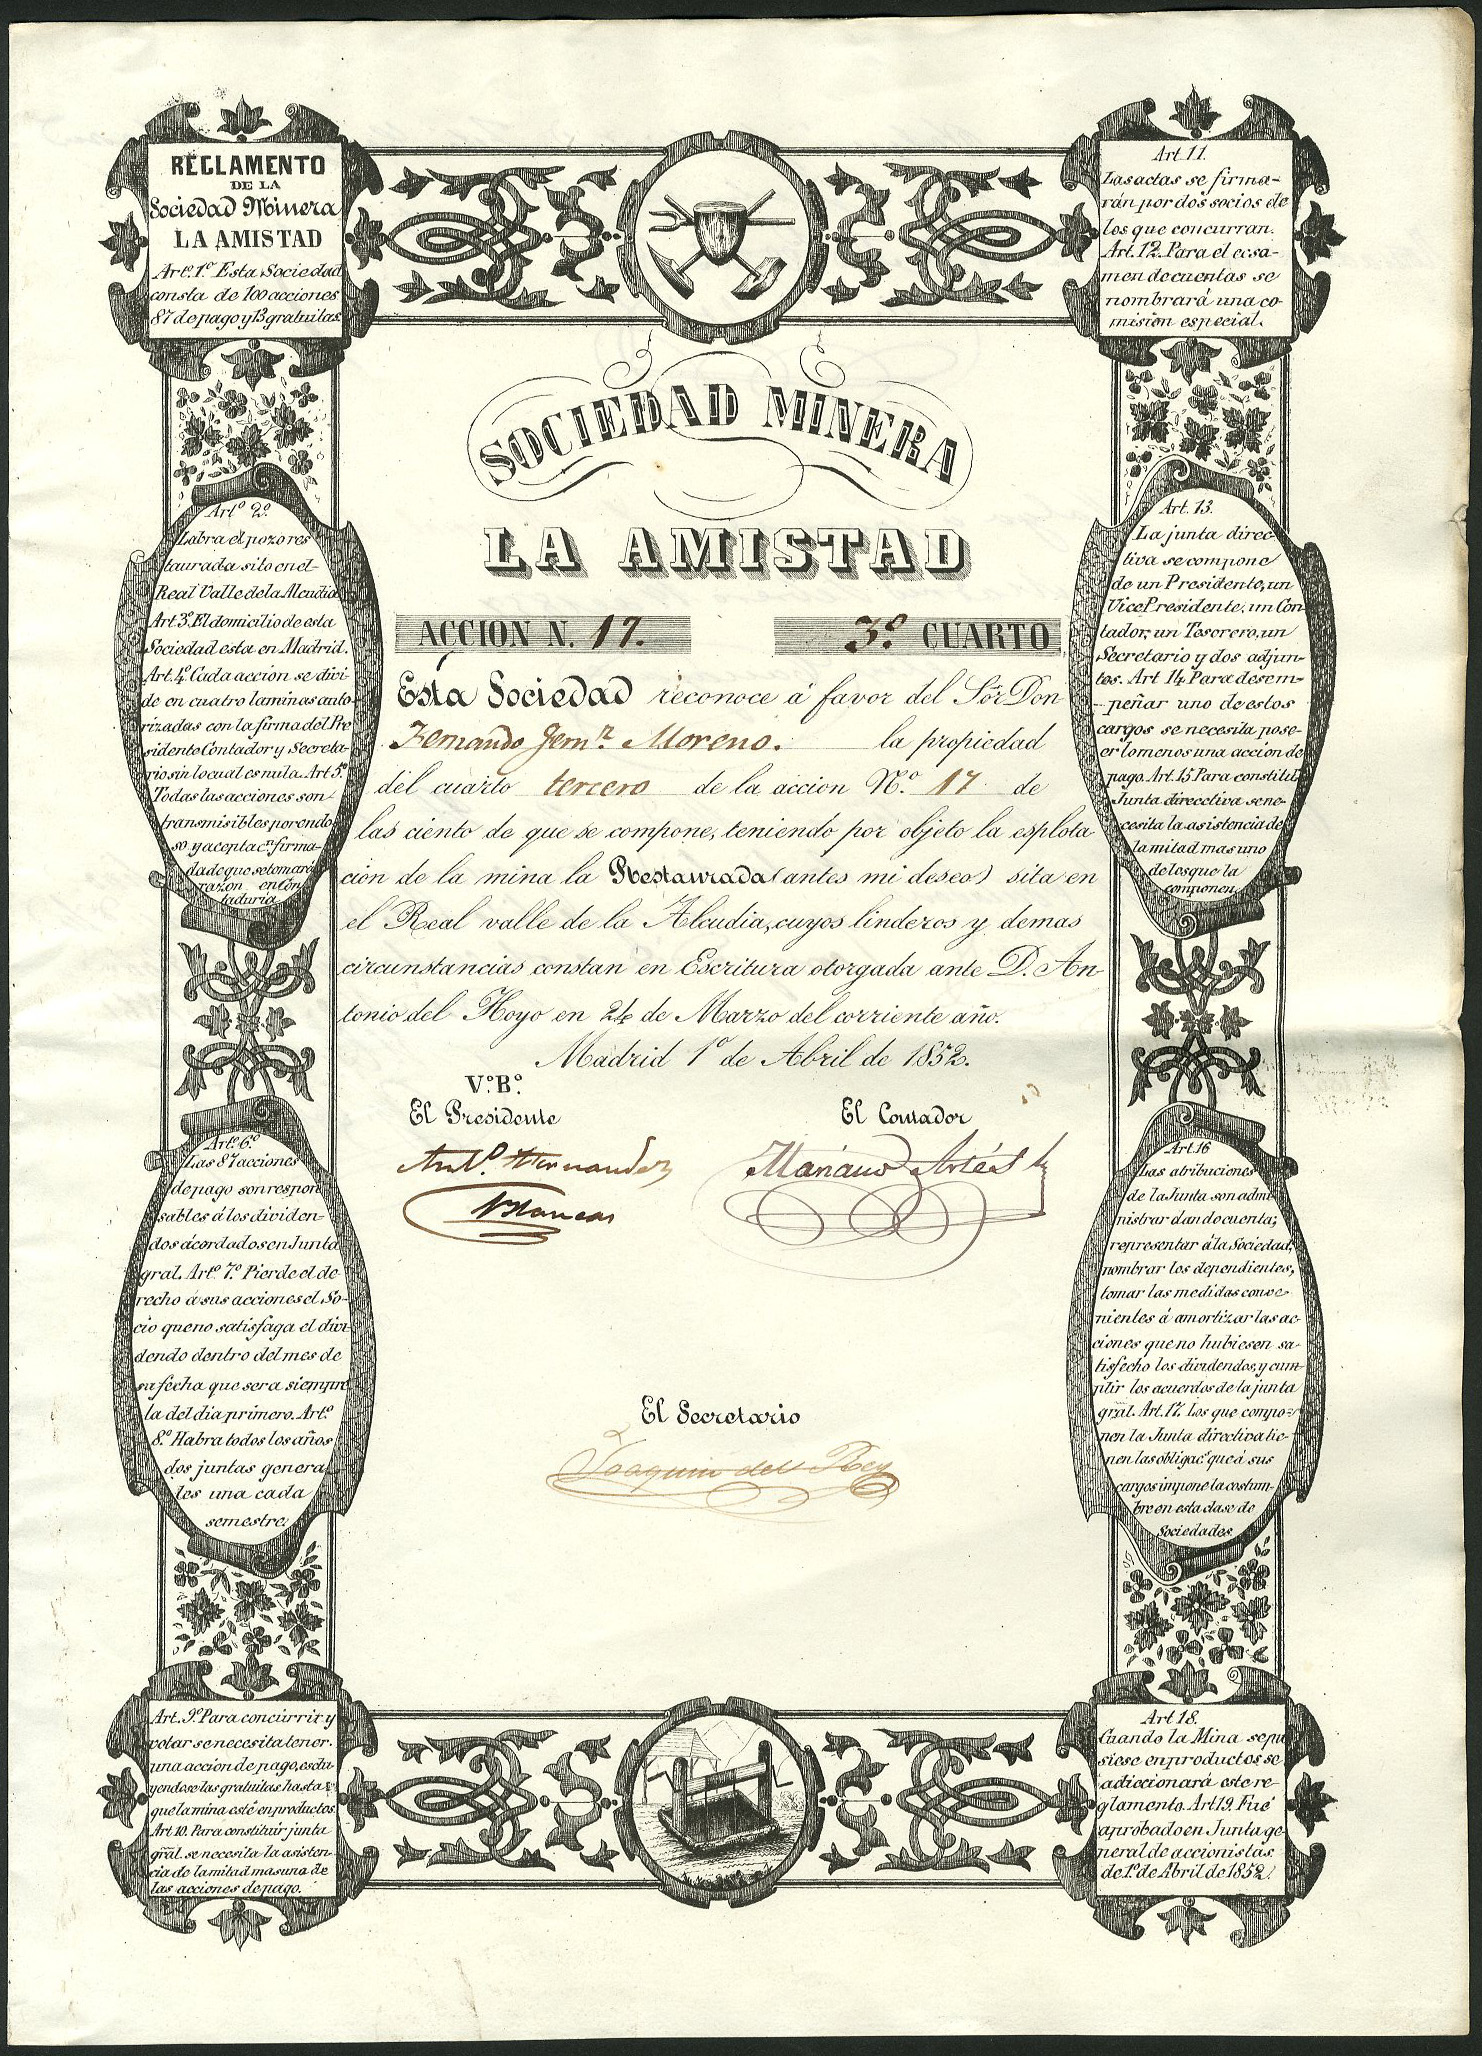 REGLAMENTO
DE LA
Sociedad Minera
LA AMISTAD
Arto. 1o. Esta Sociedad
consta de 100 acciones
87 de pago y 13 gratuitas.
Arto. 2o.
Labra el pozo res
taurada sito en el
Real Valle de la Alcudia
Art. 3o. El domicilio de esta
Sociedad esta en Madrid.
Art. 4o. Cada accion se divi-
de en cuatro laminas auto-
rizadas con la firma del Pre
sidente Contador y Secreta-
rio sin lo cual es nula. Art 5o.
Todas las acciones son
transmisibles por endo-
so y aceptacn. firma-
da de que se tomará
razon en Con
taduria
Arto. 6o.
Las 87 acciones
de pago son respon
sables á los dividen-
dos acordados en Junta
gral. Arto. 7o. Pierde el de
recho á sus acciones el So-
cio que no satisfaga el divi-
dendo dentro del mes de
su fecha que sera siempre
la del dia primero. Arto.
8o. Habra todos los años
dos juntas genera-
les una cada
semestre.
Art. 9o. Para concurrir y
votar se necesita tener
una acción de pago, esclu
yendose las gratuitas hasta
que la mina esté en productos.
Art 10. Para constituir junta
gral. se necesita la asisten-
cia de la mitad mas una de
las acciones de pago.
SOCIEDAD MINERA
LA AMISTAD
ACCION N. 17. 3o. CUARTO
Esta Sociedad reconoce á favor del Sór Don
Fernando Jemz. Moreno. la propiedad
del cuarto tercero de la accion No. 17 de
las ciento de que se compone, teniendo por objeto la esplota
ción de la mina la Restaurada (antes mi deseo) sita en
el Real valle de la Alcudia, cuyos linderos y demas
circunstancias constan en Escritura otorgada ante D. An-
tonio del Hoyo en 24 de Marzo del corriente año.
Madrid 1o de Abril de 1852.
Vo. Bo.
El Presidente El Contador
Anto. Hernandez Mariano Artés
Blancas
El Secretario
Joaquin del Rey
Art. 11.
Las actas se firma-
rán por dos socios de
los que concurran.
Art. 12. Para el ecsa-
men de cuentas se
nombrará una co
misión especial.
Art. 13.
La junta direc-
tiva se compone
de un Presidente, un
Vice Presidente, un Con
tador, un Tesorero, un
Secretario y dos adjun-
tos. Art 14. Para desem-
peñar uno de estos
cargos se necesita pose-
er lo menos una accion de
pago. Art. 15 Para constituir
Junta direcctiva se ne-
cesita la asistencia de
la mitad mas uno
de los que la
componen
Art. 16
Las atribuciones
de la Junta son admi
nistrar dando cuenta;
representar á la Sociedad,
nombrar los dependientes,
tomar las medidas conve-
nientes á amortizar las ac-
ciones que no hubiesen sa-
tisfecho los dividendos, y cum
plir los acuerdos de la junta
gral. Art. 17. Los que compo-
nen la Junta directiva tie-
nen las obligacs. que á sus
cargos impone la costum-
bre en esta clase de
Sociedades
Art 18.
Cuando la Mina se pu
siese en productos se
adiccionará este re-
glamento. Art. 19. Fué
aprobado en Junta ge-
neral de accionistas
de 1o. de Abril de 1852.